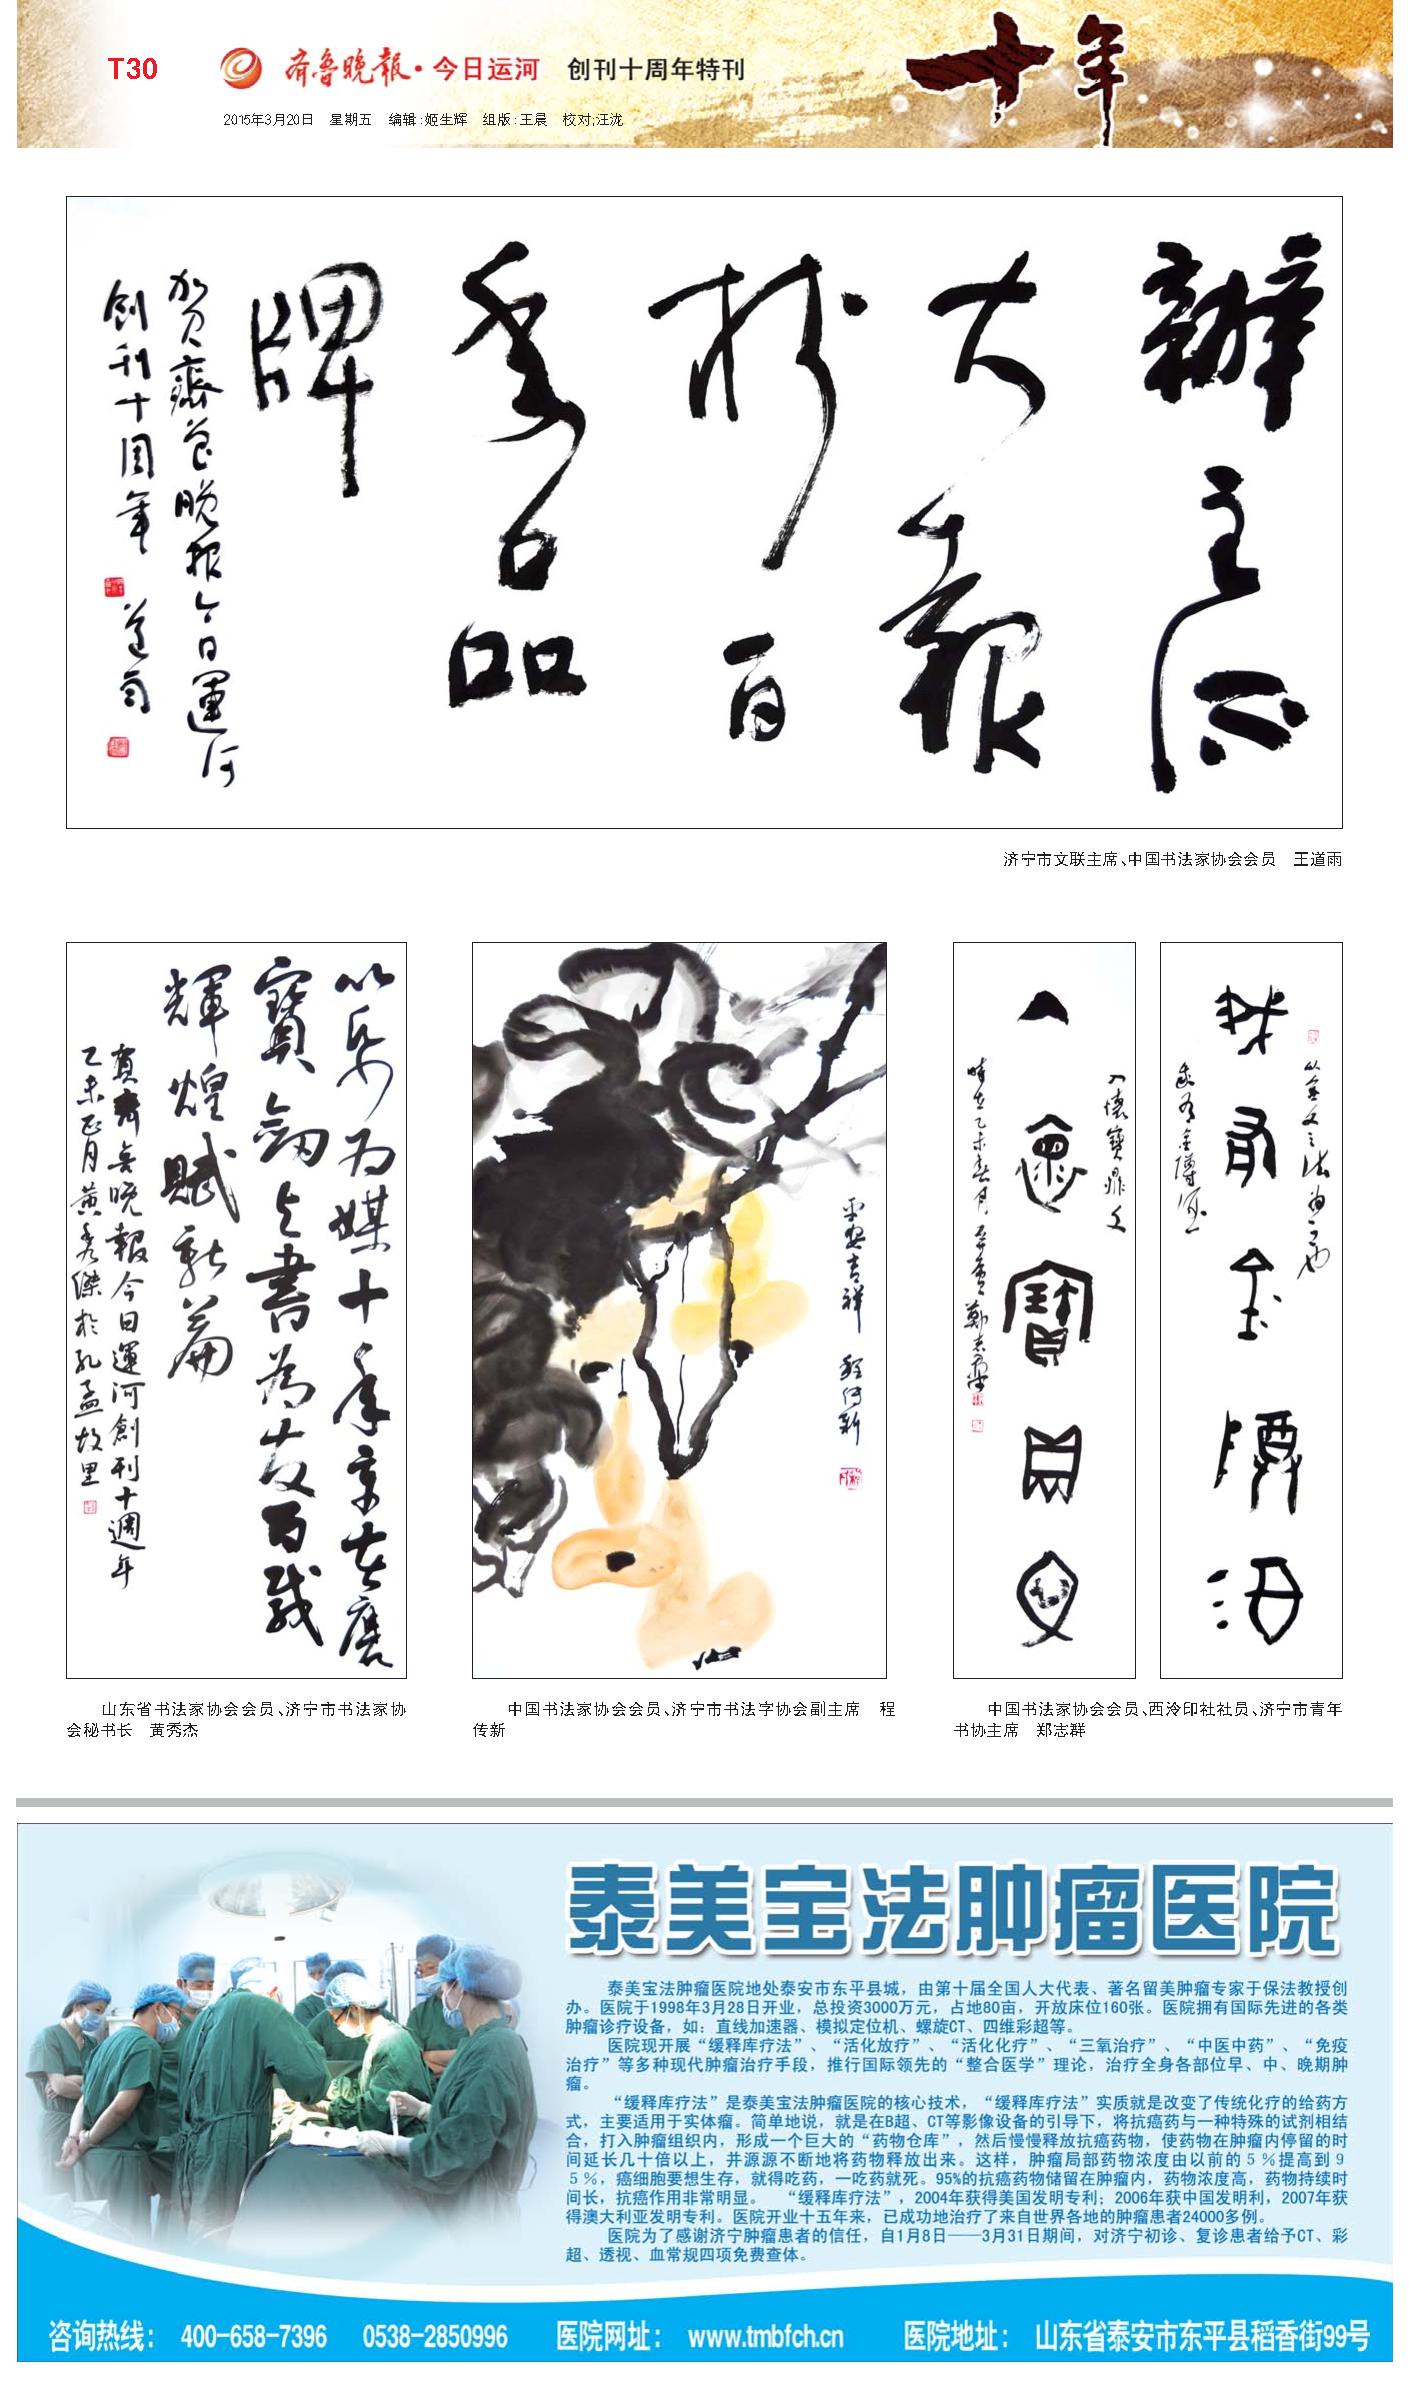 T30
齐鲁晚报·今日运河 创刊十周年特刊
十年
2015年3月20日 星期五 编辑:姬生辉 组版:王晨 校对;汪泷
辦主流
大報
樹百
秀品
牌
贺齊鲁晚报今日運河
創刊十周年 道雨
济宁市文联主席、中国书法家协会会员 王道雨
以紙为媒十年辛苦磨
寶劍与書為友百載
輝煌賦新篇
賀齊魯晚報今日運河創刊十週年
乙未正月黄秀傑於孔孟故里
平安吉祥 程传新
入懷寶鼎文
時在乙未春月
鄭志群
从金文之法为之也
山东省书法家协会会员、济宁市书法家协
会秘书长 黄秀杰
中国书法家协会会员、济宁市书法字协会副主席 程
传新
中国书法家协会会员、西泠印社社员、济宁市青年
书协主席 郑志群
泰美宝法肿瘤医院
泰美宝法肿瘤医院地处泰安市东平县城，由第十届全国人大代表、著名留美肿瘤专家于保法教授创
办。医院于1998年3月28日开业，总投资3000万元，占地80亩，开放床位160张。医院拥有国际先进的各类
肿瘤诊疗设备，如：直线加速器、模拟定位机、螺旋CT、四维彩超等。
医院现开展“缓释库疗法”、“活化放疗”、“活化化疗”、“三氧治疗”、“中医中药”、“免疫
治疗”等多种现代肿瘤治疗手段，推行国际领先的“整合医学”理论，治疗全身各部位早、中、晚期肿
瘤。
“缓释库疗法”是泰美宝法肿瘤医院的核心技术，“缓释库疗法”实质就是改变了传统化疗的给药方
式，主要适用于实体瘤。简单地说，就是在B超、CT等影像设备的引导下，将抗癌药与一种特殊的试剂相结
合，打入肿瘤组织内，形成一个巨大的“药物仓库”，然后慢慢释放抗癌药物，使药物在肿瘤内停留的时
间延长几十倍以上，并源源不断地将药物释放出来。这样，肿瘤局部药物浓度由以前的５％提高到９
５％，癌细胞要想生存，就得吃药，一吃药就死。95%的抗癌药物储留在肿瘤内，药物浓度高，药物持续时
间长，抗癌作用非常明显。 “缓释库疗法”，2004年获得美国发明专利；2006年获中国发明利，2007年获
得澳大利亚发明专利。医院开业十五年来，已成功地治疗了来自世界各地的肿瘤患者24000多例。
医院为了感谢济宁肿瘤患者的信任，自1月8日——3月31日期间，对济宁初诊、复诊患者给予CT、彩
超、透视、血常规四项免费查体。
咨询热线： 400-658-7396 0538-2850996 医院网址： www.tmbfch.cn 医院地址： 山东省泰安市东平县稻香街99号